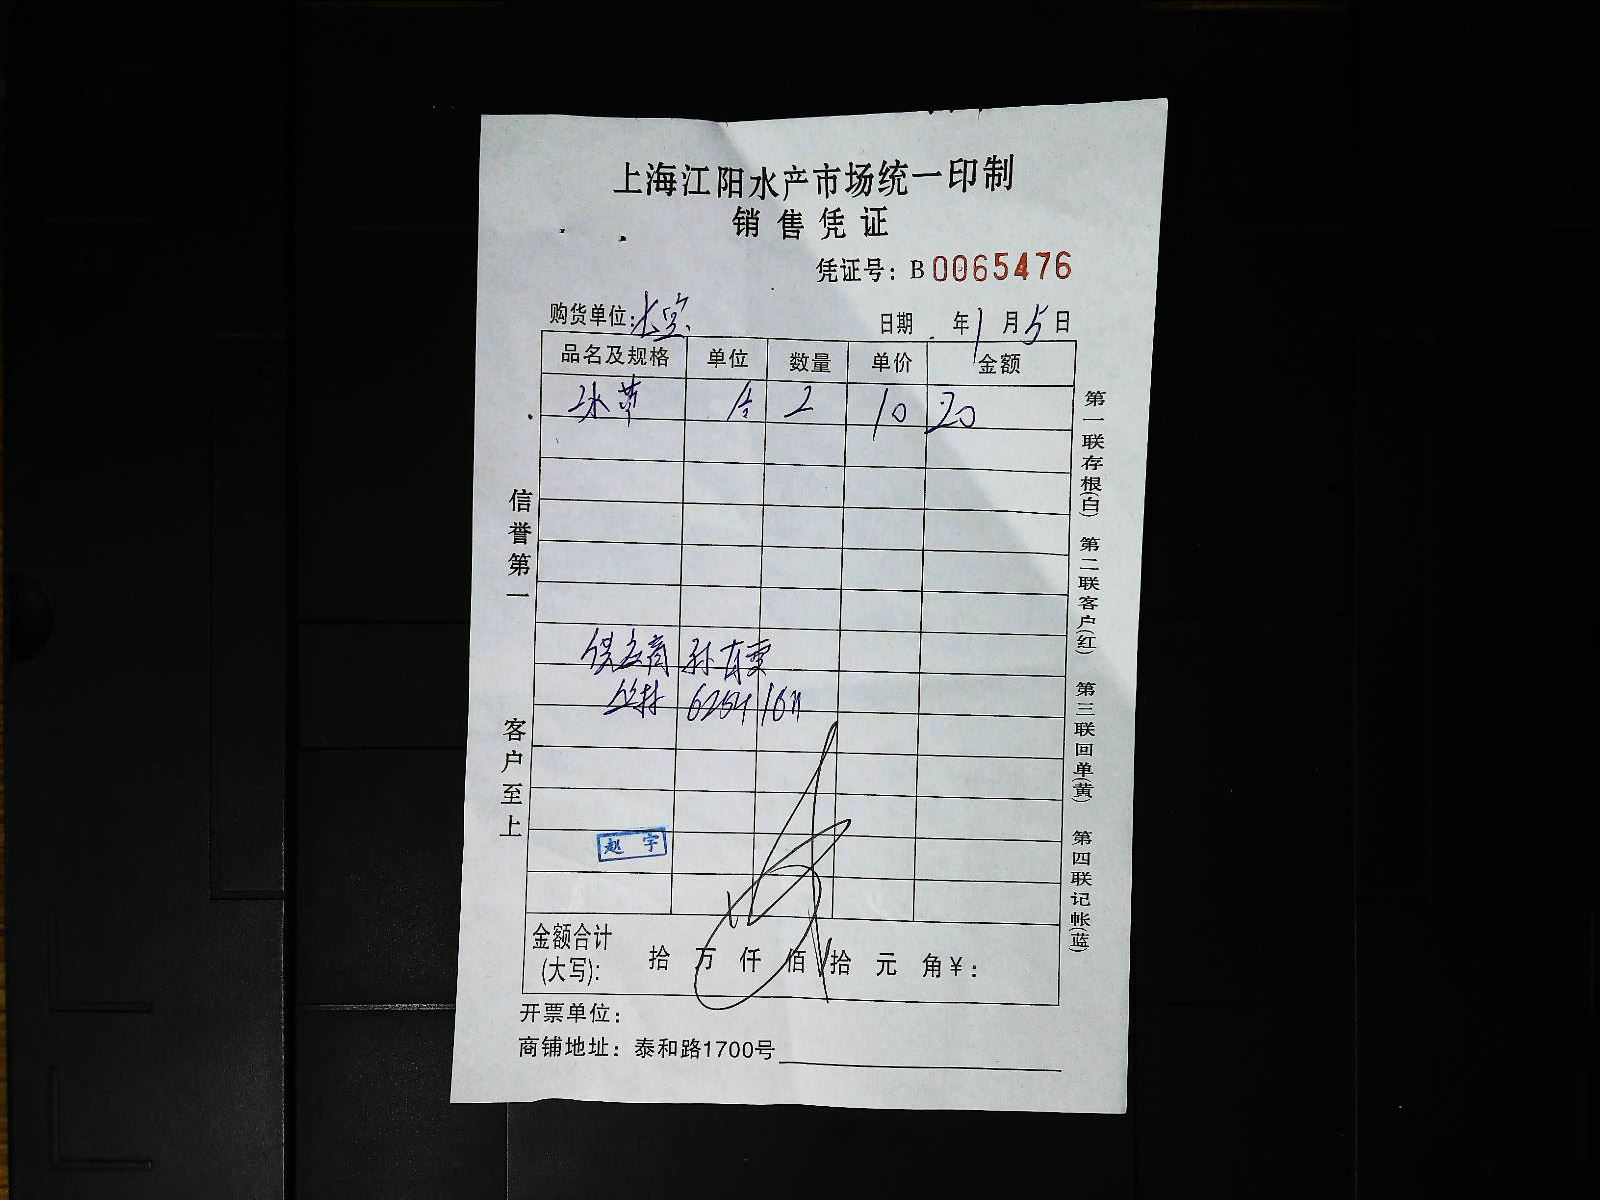 上海江阳水产市场统一印制
销售凭证
凭证号：B 0065476
购货单位：长宝 日期 年1月5日
品名及规格 单位 数量 单价 金额
冰 2 10 20
供应商 孙
赵宇
金额合计(大写)： 拾 万 仟 佰 拾 元 角￥：
开票单位：
商铺地址：泰和路1700号
信誉第一 客户至上
第一联存根(白) 第二联客户(红) 第三联回单(黄) 第四联记帐(蓝)